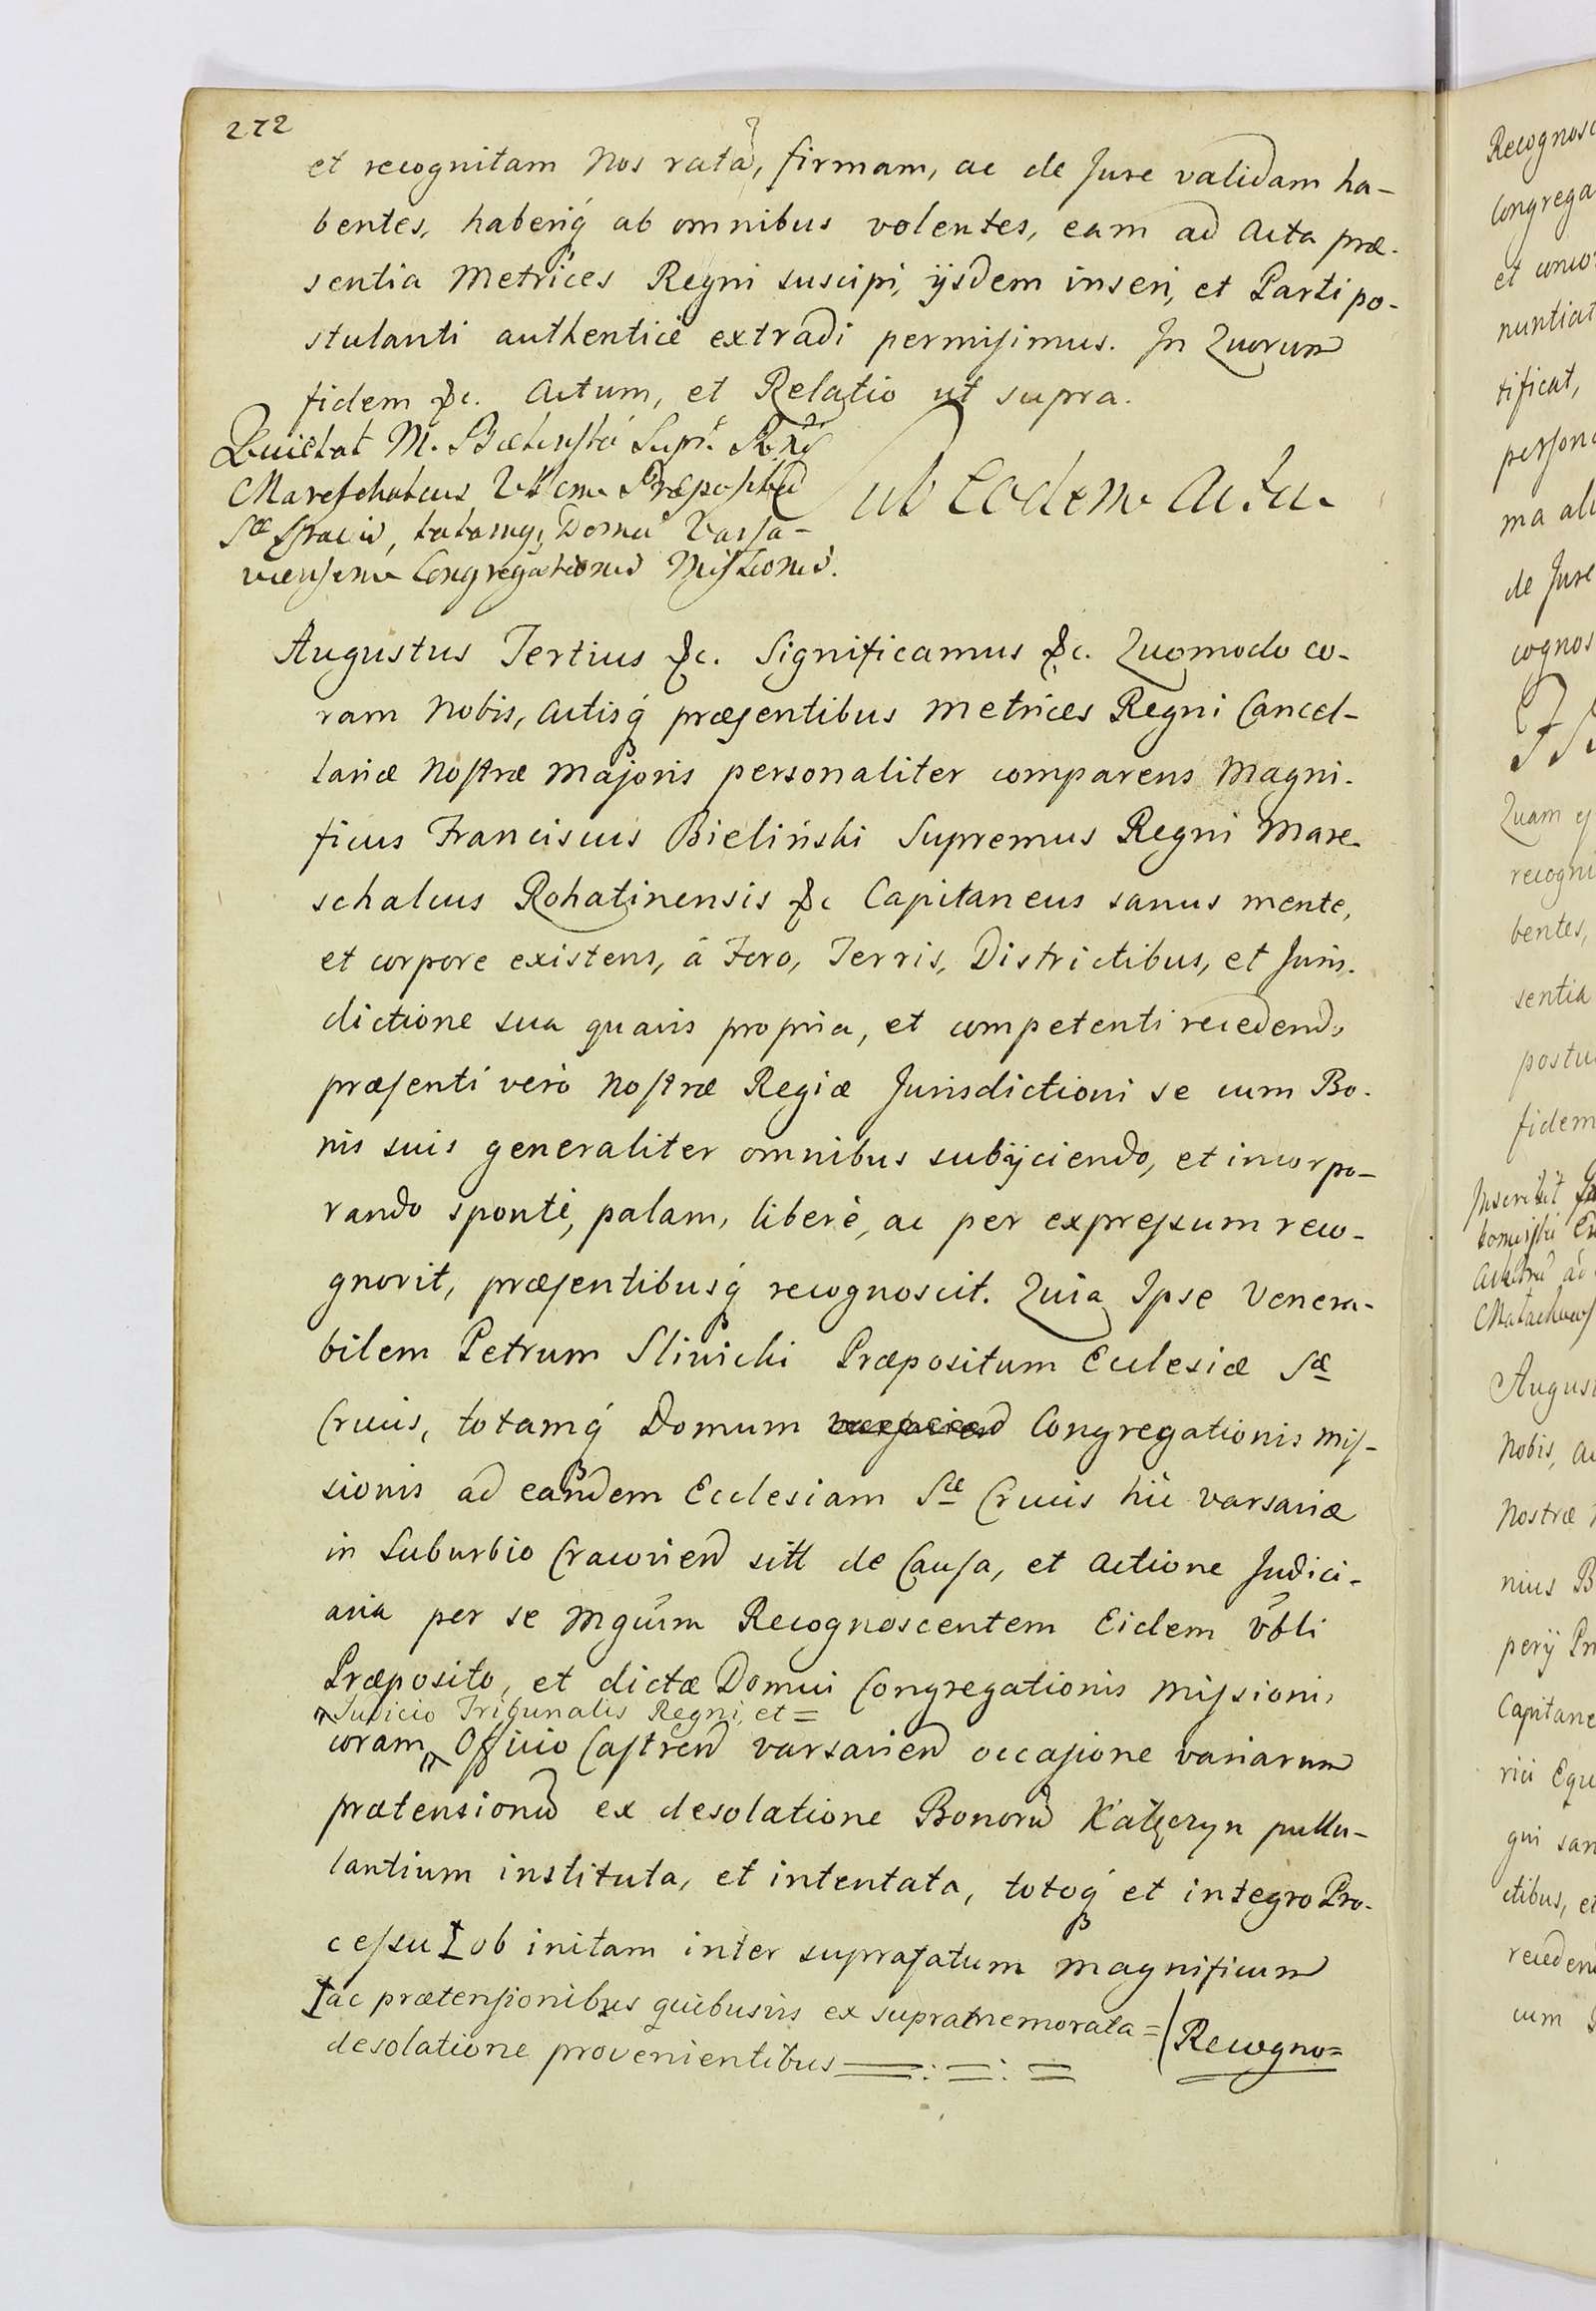 272
et recognitam Nos ratã, firmam, ac de Jure validam ha-
bentes, haberiq́ ab omnibus volentes, eam ad Acta præ-
sentia Metrices Regni suscipi, ijsdem inseri, et Parti po-
stulanti authenticè extradi permisimus. In Quorum
fidem &c. Actum, et Relatio ut supra.
Quietat M. Bielinski Supr. Regni
Mareschalcus Præpositũ
Sæ Crucis, totamq́ Domũ Varsa-
viensem Congregationis Missionis.
Sub Eodem Actu
Augustus Tertius &c. Significamus &c. Quomodo co-
ram Nobis, Actisq́ præsentibus Metrices Regni Cancel-
lariæ Nostræ Majoris personaliter comparens Magni-
ficus Franciscus Bieliński Supremus Regni Mare-
schalcus Rohatinensis &c Capitaneus sanus mente,
et corpore existens, á Foro, Terris, Districtibus, et Juris-
dictione sua quavis propria, et competenti recedendo
præsenti verò Nostræ Regiæ Jurisdictioni se cum Bo-
nis suis generaliter omnibus subÿciendo, et incorpo-
rando spontè, palam, liberè, ac per expressum reco-
gnovit, præsentibusq́ recognoscit. Quia Ipse Venera-
bilem Petrum Sliwicki Præpositum Ecclesiæ Sæ
Crucis, totamq́ Domum Congregationis Mis-
sionis ad eandem Ecclesiam Sæ Crucis hìc Varsaviæ
in Suburbio Cracovien sitt de Causa, et Actione Judici-
aria per se Mgcum Recognoscentem Eidem Vbli
Præposito, et dictæ Domui Congregationis Missionis
Judicio Tribunalis Regni, et =
coram Officio Castren Varsavien occasione variarum
prætensionũ ex desolatione Bonorũ Kątęczyn pullu-
lantium instituta, et intentata, totoq́ et integro Pro-
cessu ob initam inter suprafatum Magnificum
ac prætensionibus quibusvis ex supramemorata =
desolatione provenientibus
Recogno=